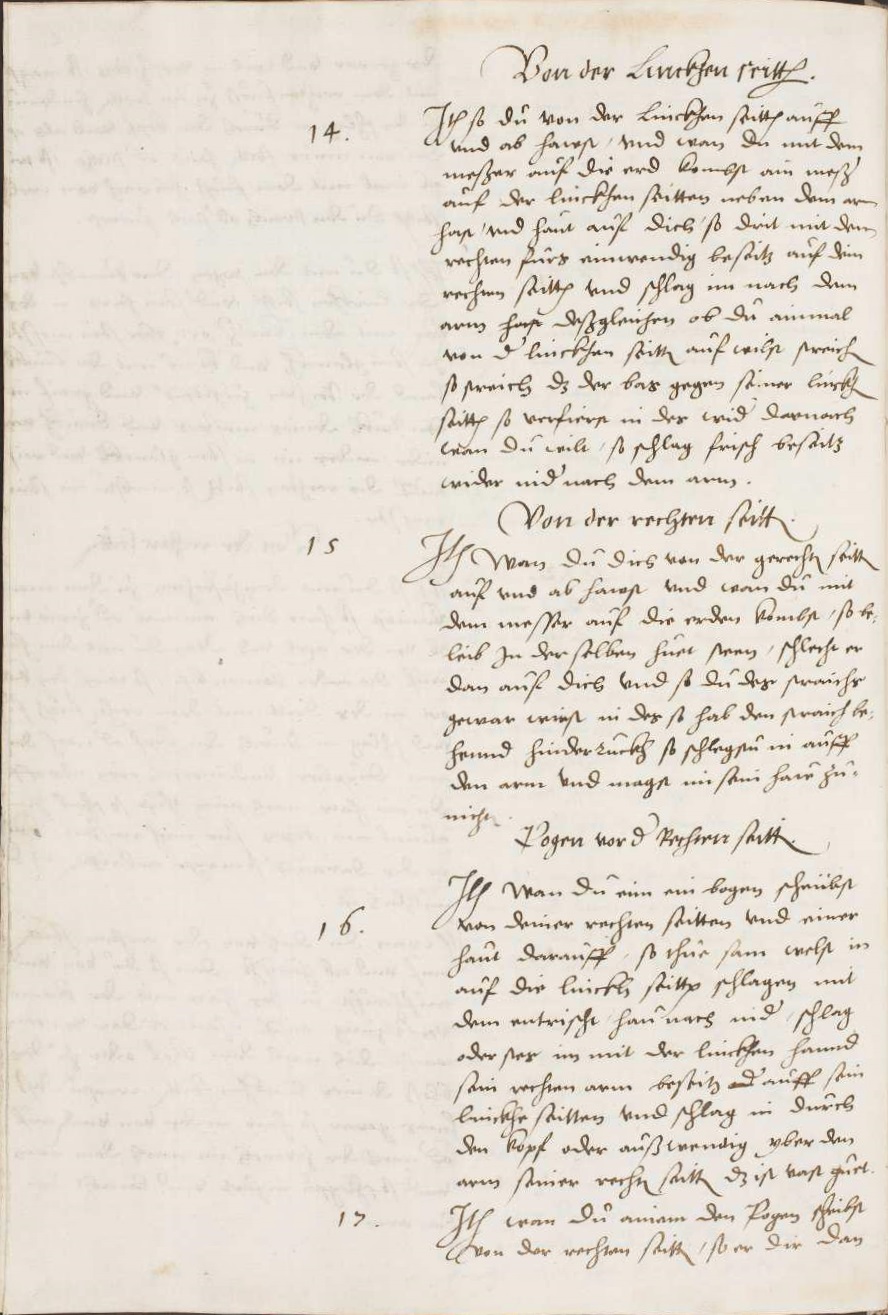 Von der Linckhen seitt.
14.
Itt so dú von der Linckhen seitt auff
vnd ab hawst / vnd wan du mit dem
meßer auf die erd kombst ain meß
auf der linckhen seitten neben dem arm
hast / vnd haut auf dich / so drit mit dem
rechten fúrs einwendig beseitz auf dein
rechten seitt vnd schlag im nach dem
arm hast deßgleichen ob dú ainmal
von d linckhen seitt auf wilst streich
so streich dz der bas gegen seiner linckh
seitt so verfierst in der wid darnach
wan dú wilt / so schlag frisch beseitz
wider nid nach dem arm.
Von der rechten seitt.
15
Itt Wan dú dich von der gerecht seitt
auf vnd ab hawst vnd wan dú mit
dem messer auf die erden kombst / so be:
leib In der selben húet steen / schlecht er
dan auf dich vnd so dú des straichs
gewar wirst in des so hab den straich be:
hennd hinder rúckh so schlegstú in aúff
den arm vnd magst im sein haw zú:
nicht.
Pogen von d Rechten seitt.
16.
Itt Wan dú eim ein bogen scheúbst
von deiner rechten seitten vnd einer
haut daraúff / so thúe sam welst in
auf die linckh seitt schlagen mit
dem entrischt haú nach nid / schlag
oder stos im mit der linckhen hannd
sein rechten arm beseitz auff sein
linckhe seitten vnd schlag in dúrch
den kopf oder aúßwendig yber den
arm seiner recht seitt dz ist vast gúet.
17.
Itt wan dú ainem den Pogen scheibst
von der rechten seitt / so er dir dan